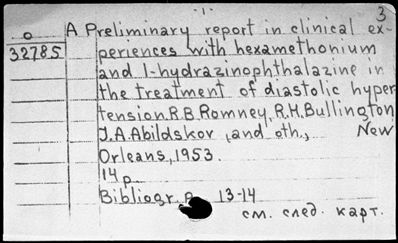 ·1·
3
o
32785
A Preliminary report in clinical ex-
periences with hexamethonium
and 1-hydrazinophthalazine in
the treatment of diastolic hyper
tension. R.B. Romney, R.H. Bullington
J.A. Abildskor, and oth., New
Orleans, 1953.
14 p
Bibliogr. p 13-14
см. след. карт.